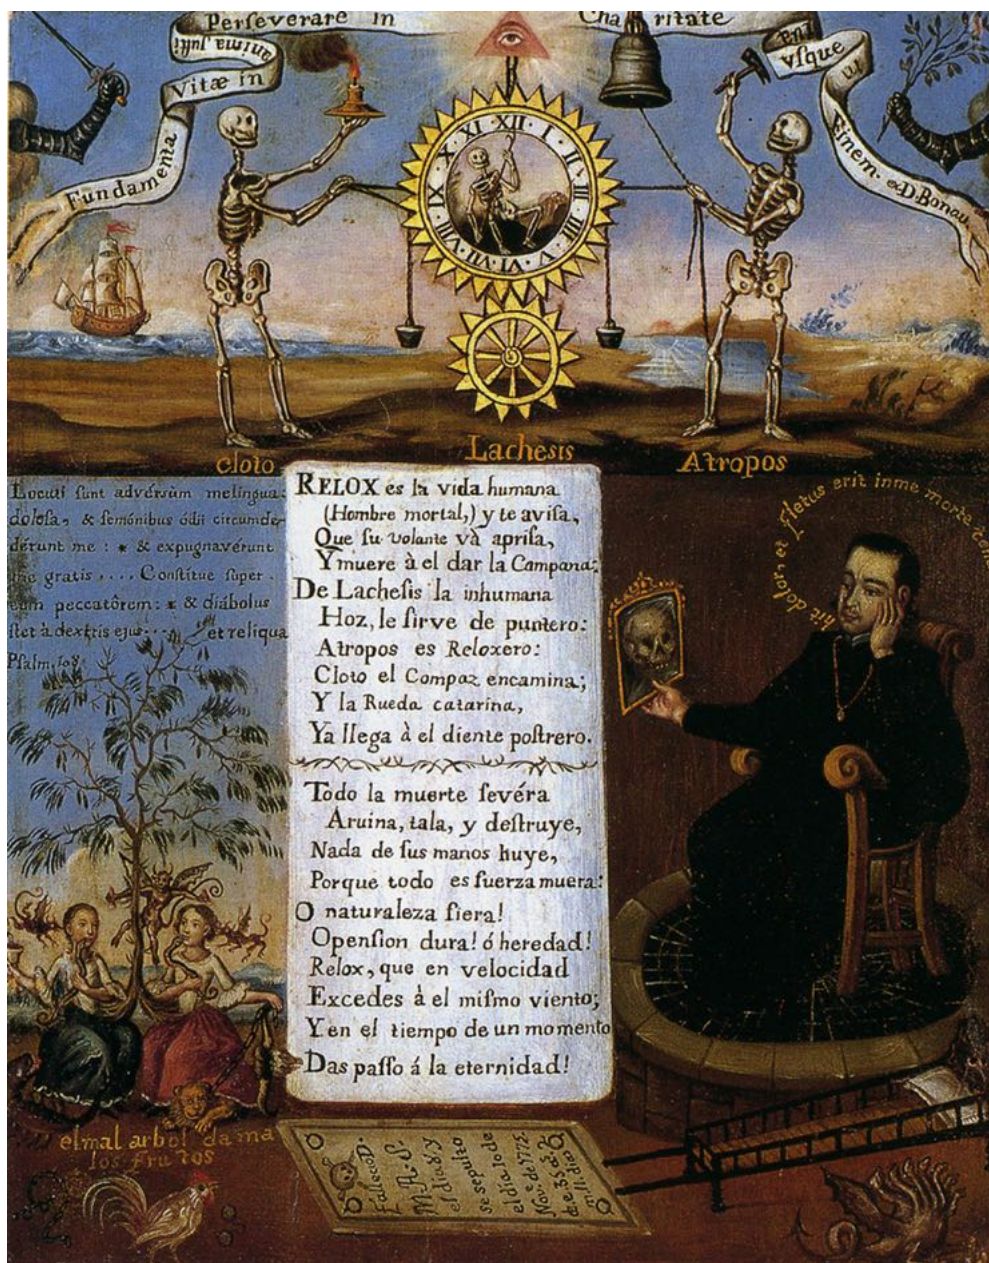 Perseverare in Charitate
Fundamenta
Vitæ in
anima Justi
usque
in
Finem. D. Bonav.
XII · I · II · III · IIII · V · VI · VII · VIII · IX · X · XI
cloto
Lachesis
Atropos
Locuti sunt advérsùm me lingua
dolosa, & semónibus ódii circumde-
dérunt me : * & expugnavérunt
me gratis .... Constitue super
eum peccatôrem: * & diábolus
stet à dextris ejus.... et reliqua
Psalm. 108
RELOX es la vida humana
(Hombre mortal,) y te avisa,
Que su volante và aprisa,
Y muere à el dar la Campana:
De Lachesis la inhumana
Hoz, le sirve de puntero:
Atropos es Reloxero:
Cloto el Compaz encamina;
Y la Rueda catarina,
Ya llega à el diente postrero.
Todo la muerte sevéra
Aruina, tala, y destruye,
Nada de sus manos huye,
Porque todo es fuerza muera:
O naturaleza fiera!
O pension dura! ó heredad!
Relox, que en velocidad
Excedes à el mismo viento;
Y en el tiempo de un momento
Das passo á la eternidad!
hit dolor, et fletus erit in me morte
el mal arbol da ma
los frutos
Fallecco D.
M. A. S.
el dia 8 y
se sepulto
el dia 10 de
Nov.e de 1775.